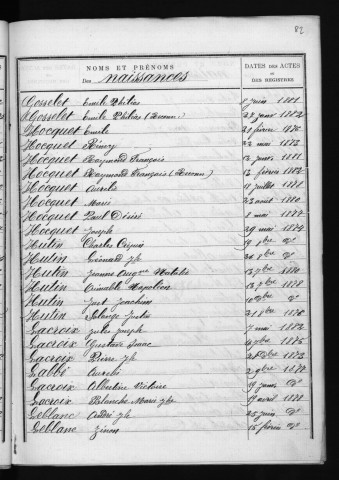 82
NOMS ET PRÉNOMS
DATES DES ACTES
Des naissances
ET
DES REGISTRES
Gosselet Emile Philéas 8 juin 1881
Gosselet Emile Philéas (Reconn.) 28 janv 1882
Hocquet Emile février 1876
Hocquet Rémy 22 mai 1873
Hocquet Raymond François 13 janv 1881
Hocquet Raymond François (Reconn) 13 février 1882
Hocquet Aurélie 11 juillet 1878
Hocquet Marie 23 août 1880
Hocquet Paul Désiré 8 mai 1877
Hocquet Joseph 29 mai 1874
Hutin Charles 19 dº
Hutin Léonard Jh dº
Hutin Jeanne Augne Natalie 1880
Hutin Aimable Napoléon 1878
Hutin Just Joachim 10 dº
Hutin Solange Julie 31 1876
Lacroix Jules Joseph 7 mai 1882
Lacroix Gustave Isaac 1875
Lacroix Pierre Jh 1873
Labbé Aurélie 2 9bre
Lacroix Albertine Victoire 19 janv dº
Lacroix Blanche Marie Jhe 17 avril
Leblanc André Jh 25 juin dº
Leblanc Zénon 15 février dº